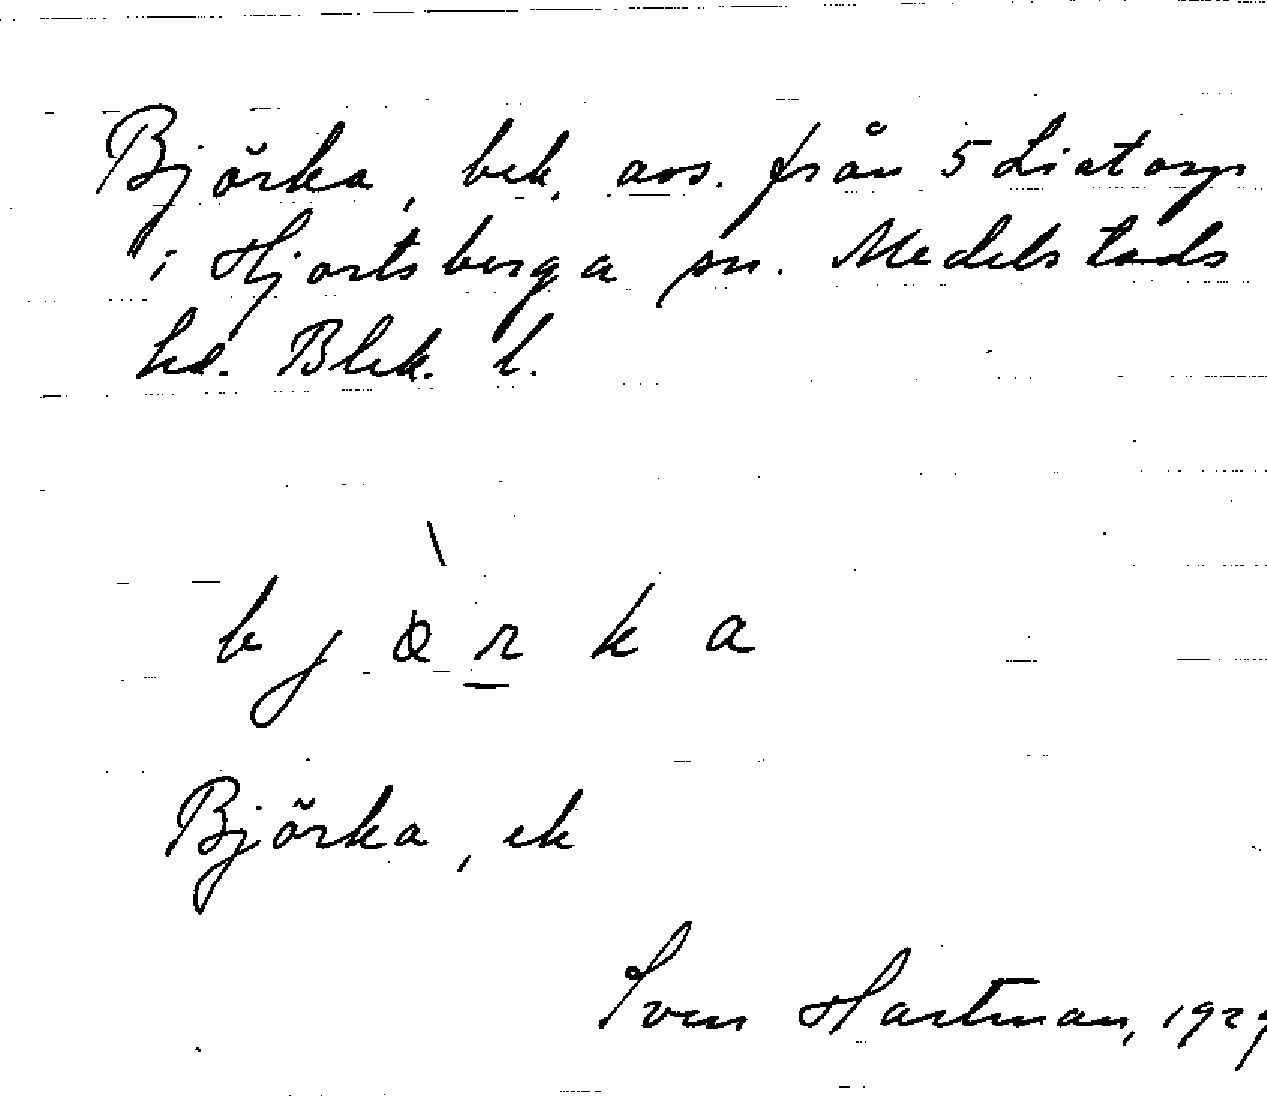 Björka, bek. avs. från 5 Listorp
i Hjortsberga sn. Medelstads
hd. Blek. l.
b j ö r k a
Björka, ek
Sven Hartman, 1929